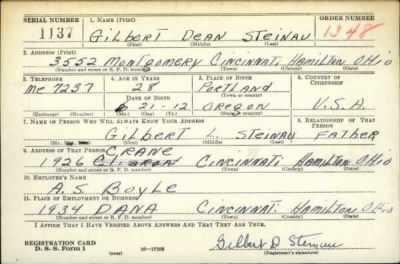 SERIAL NUMBER 1. NAME (Print) ORDER NUMBER
1137 Gilbert Dean Steinau 1348
(First) (Middle) (Last)
2. ADDRESS (Print)
3552 Montgomery Cincinnati Hamilton Ohio
(Number and street or R. F. D. number) (Town) (County) (State)
3. TELEPHONE 4. AGE IN YEARS 5. PLACE OF BIRTH 6. COUNTRY OF CITIZENSHIP
Me 7237 28 Portland
DATE OF BIRTH (Town or county)
6 21-12 Oregon U.S.A.
(Exchange) (Number) (Mo.) (Day) (Yr.) (State or country)
7. NAME OF PERSON WHO WILL ALWAYS KNOW YOUR ADDRESS 8. RELATIONSHIP OF THAT PERSON
Gilbert L. Steinau Father
(Mr., Mrs., Miss) (First) (Middle) (Last)
9. ADDRESS OF THAT PERSON CRANE
1926 Cincinnati, Hamilton, Ohio
(Number and street or R. F. D. number) (Town) (County) (State)
10. EMPLOYER'S NAME
A.S. Boyle
11. PLACE OF EMPLOYMENT OR BUSINESS
1934 DANA Cincinnati. Hamilton Ohio
(Number and street or R. F. D. number) (Town) (County) (State)
I AFFIRM THAT I HAVE VERIFIED ABOVE ANSWERS AND THAT THEY ARE TRUE.
REGISTRATION CARD
D. S. S. Form 1 16-17105 Gilbert D Steinau
(Registrant's signature)